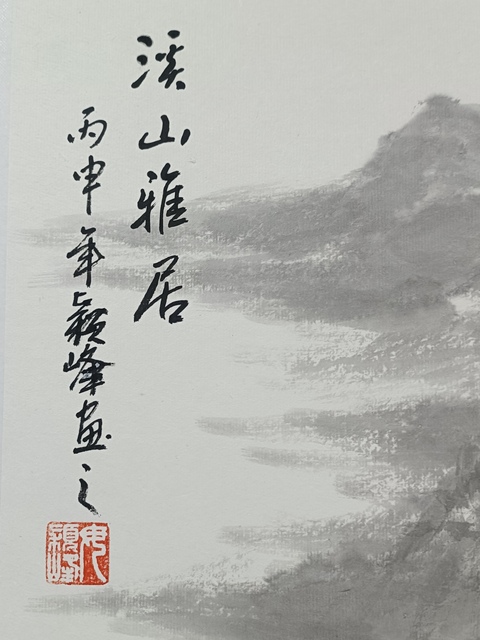 溪山雅居
丙申年颖峰画之